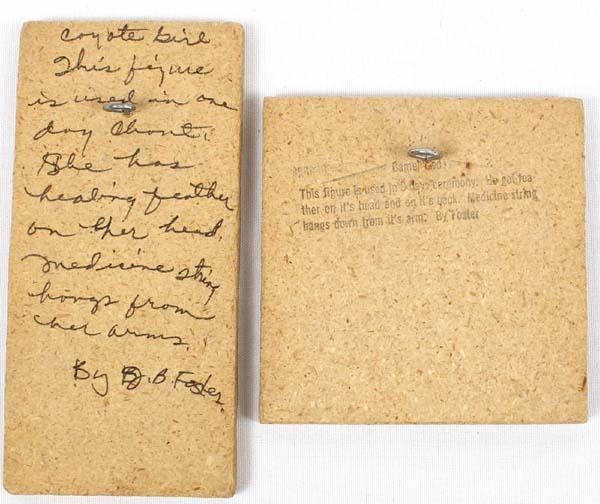 Coyote Girl
This figure
is used in one
day Chant.
She has
healing feather
on ther head.
medicine string
hangs from
her arms.
By J.B. Foster
Camel God
This figure is used in 9 days ceremony. He got fea
ther on it's head and on it's back. Medicine string
hangs down from it's arm. By Foster